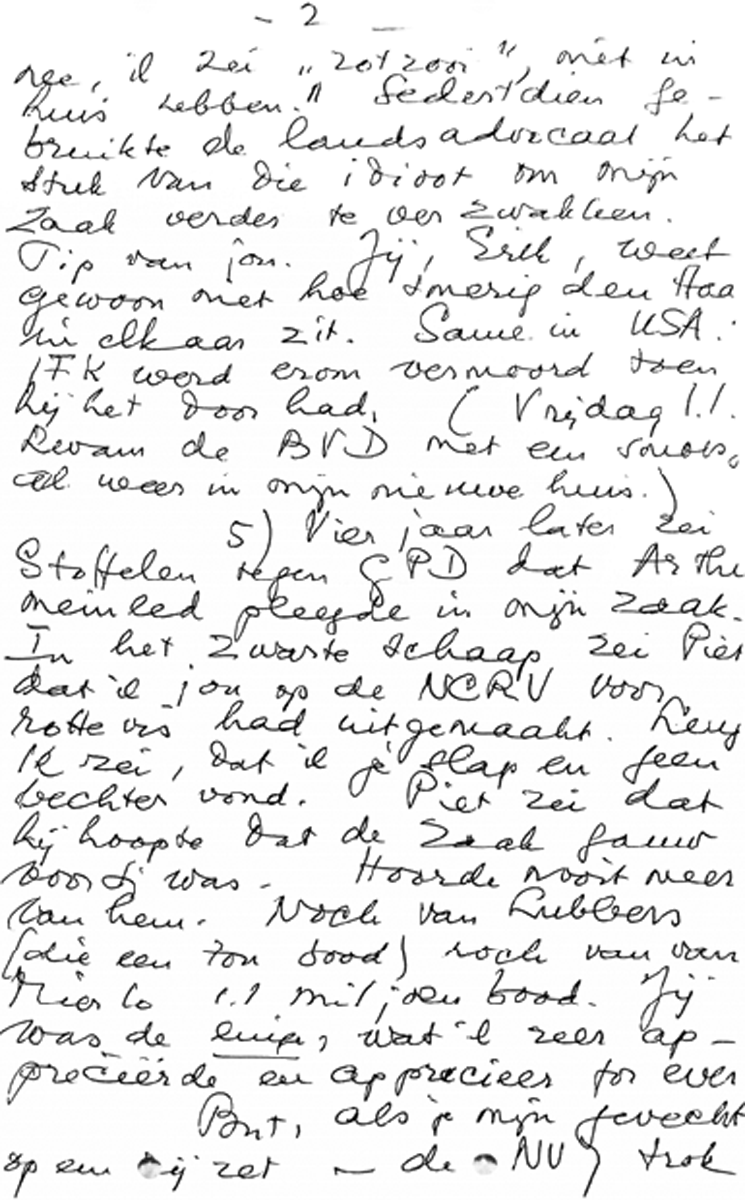 - 2 -
nee, ik zei "rotzooi", niet in
huis hebben." Sedertdien ge-
bruikte de landsadvocaat het
stuk van die idioot om mijn
zaak verder te verzwakken.
Tip van jou. Jij, Erik, weet
gewoon niet hoe smerig den Haa
in elkaar zit. Same in USA.
JFK werd erom vermoord toen
hij het door had. (Vrijdag j.l.
kwam de BVD met een
al weer in mijn nieuwe huis.)
5) Vier jaar later zei
Stoffelen tegen GPD dat Arthu
meineed pleegde in mijn zaak.
In het zwarte schaap zei Piet
dat ik jou op de NCRV voor
rotte vis had uitgemaakt. Leug
Ik zei, dat ik je slap en geen
vechter vond. Piet zei dat
hij hoopte dat de zaak gauw
voorbij was. Hoorde nooit meer
van hem. Noch van Lubbers
(die een ton bood) noch van van
Mierlo 1.1 miljoen bood. Jij
was de enige, wat ik zeer ap-
preciëerde en apprecieer for ever
But, als je mijn gevecht
op een rij zet - de NU trok